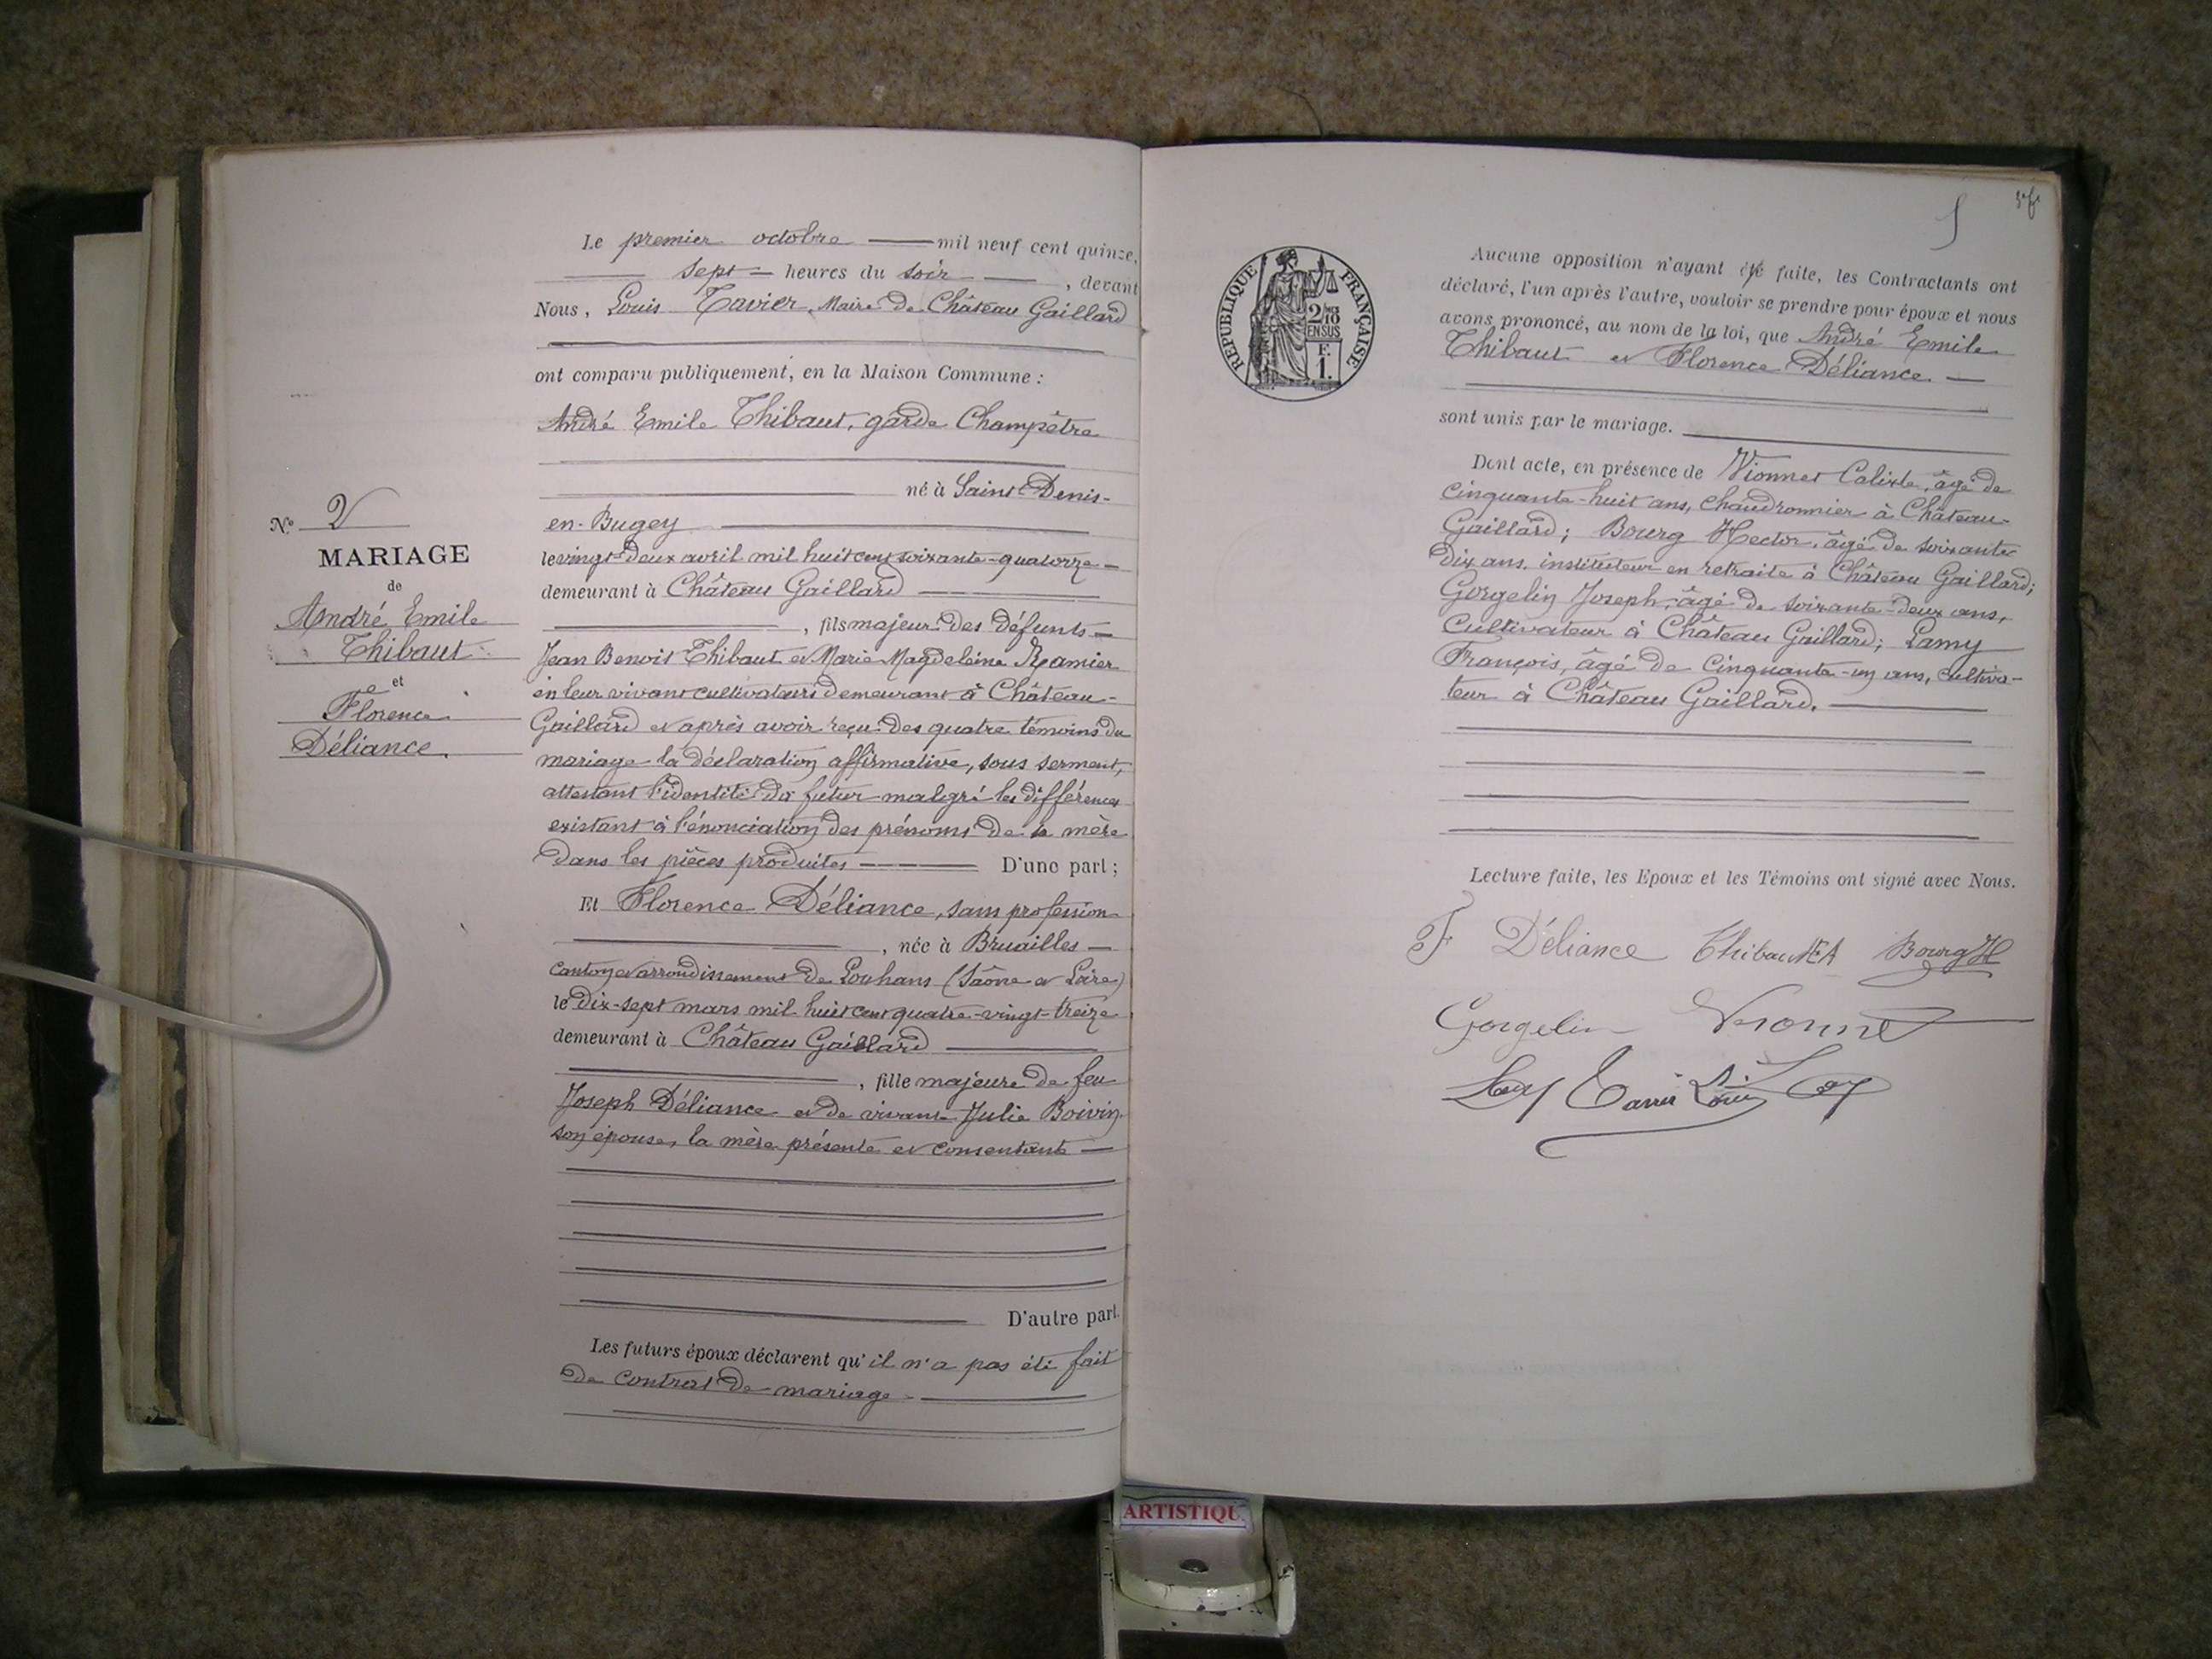 Le premier octobre mil neuf cent quinze,
sept heures du soir, devant
Nous, Louis Tavier, Maire de Château Gaillard
ont comparu publiquement, en la Maison Commune :
André Emile Thibaut, garde Champêtre
né à Saint-Denis-
en-Bugey
le vingt-deux avril mil huit cent soixante-quatorze
demeurant à Château Gaillard
, fils majeur des défunts
Jean Benoit Thibaut et Marie Magdeleine Ramier
en leur vivant cultivateurs demeurant à Château-
Gaillard et après avoir reçu des quatre témoins du
mariage la déclaration affirmative, sous serment,
attestant l'identité du futur malgré les différences
existant à l'énonciation des prénoms de la mère
dans les pièces produites D'une part ;
Et Florence Déliance, sans profession
, née à Bruailles
canton et arrondissement de Louhans (Saône et Loire)
le dix-sept mars mil huit cent quatre-vingt-treize
demeurant à Château Gaillard
, fille majeure de feu
Joseph Déliance et de vivante Julie Boivin
son épouse, la mère présente et consentante
D'autre part.
Les futurs époux déclarent qu'il n'a pas été fait
de contrat de mariage
N° 2
MARIAGE
de
André Emile
Thibaut
et
Florence
Déliance.
5
RÉPUBLIQUE FRANÇAISE
2/10
EN SUS
F.
1.
Aucune opposition n'ayant été faite, les Contractants ont
déclaré, l'un après l'autre, vouloir se prendre pour époux et nous
avons prononcé, au nom de la loi, que André Emile
Thibaut et Florence Déliance
sont unis par le mariage.
Dont acte, en présence de Vionnet Calixte, âgé de
cinquante-huit ans, chaudronnier à Château-
Gaillard; Bourg Hector, âgé de soixante
dix ans, instituteur en retraite à Château Gaillard;
Gorgelin Joseph, âgé de soixante-deux ans,
Cultivateur à Château Gaillard; Lamy
François, âgé de cinquante-un ans, cultiva-
teur à Château Gaillard.
Lecture faite, les Epoux et les Témoins ont signé avec Nous.
F Déliance Thibaut EA Bourg H
Gorgelin Vionnet
Tavier Louis
ARTISTIQU